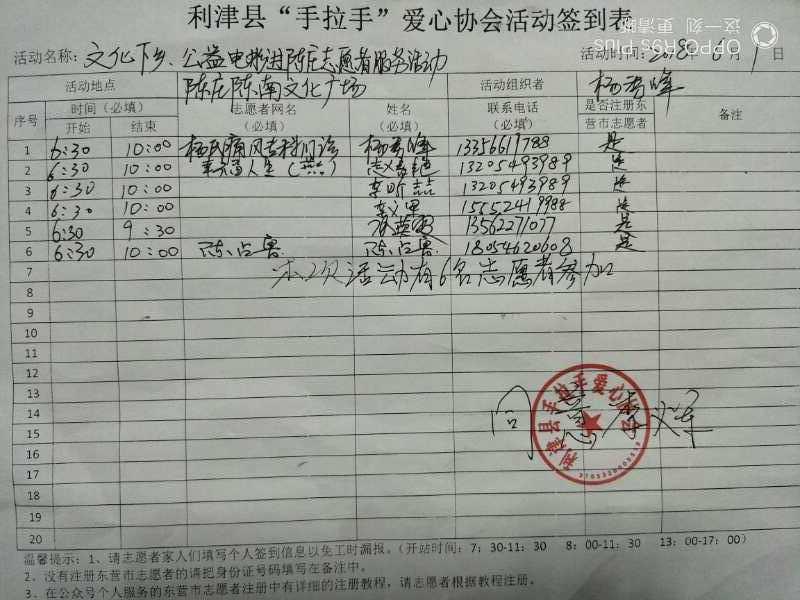 利津县“手拉手”爱心协会活动签到表
这一刻 更清晰
OPPO R9s Plus
活动名称: 文化下乡、公益电影进陈庄志愿者服务活动 活动时间: 2018年6月1日
活动地点 陈庄陈南文化广场 活动组织者 杨秀峰
序号 时间（必填） 志愿者网名（必填） 姓名（必填） 联系电话（必填） 是否注册东营市志愿者 备注
开始 结束
1 6:30 10:00 杨氏痛风专科门诊 杨秀峰 13356617788 是
2 6:30 10:00 13205493989 是
3 6:30 10:00 李昕喆 13205493989 是
4 6:30 10:00 15552419988 是
5 6:30 9:30 13562271077 是
6 6:30 10:00 陈占鲁 陈占鲁 18054620608 是
7 本次活动有6名志愿者参加
8
9
10
11
12
13
14 同意 李义军
利津县手拉手爱心协会
15
16
17
18
19
20
温馨提示：1、请志愿者家人们填写个人签到信息以免工时漏报。（开站时间：7：30-11:30 8：00-11:30 13：00-17：00）
2、没有注册东营市志愿者的请把身份证号码填写在备注中。
3、在公众号个人服务的东营市志愿者注册中有详细的注册教程，请志愿者根据教程注册。